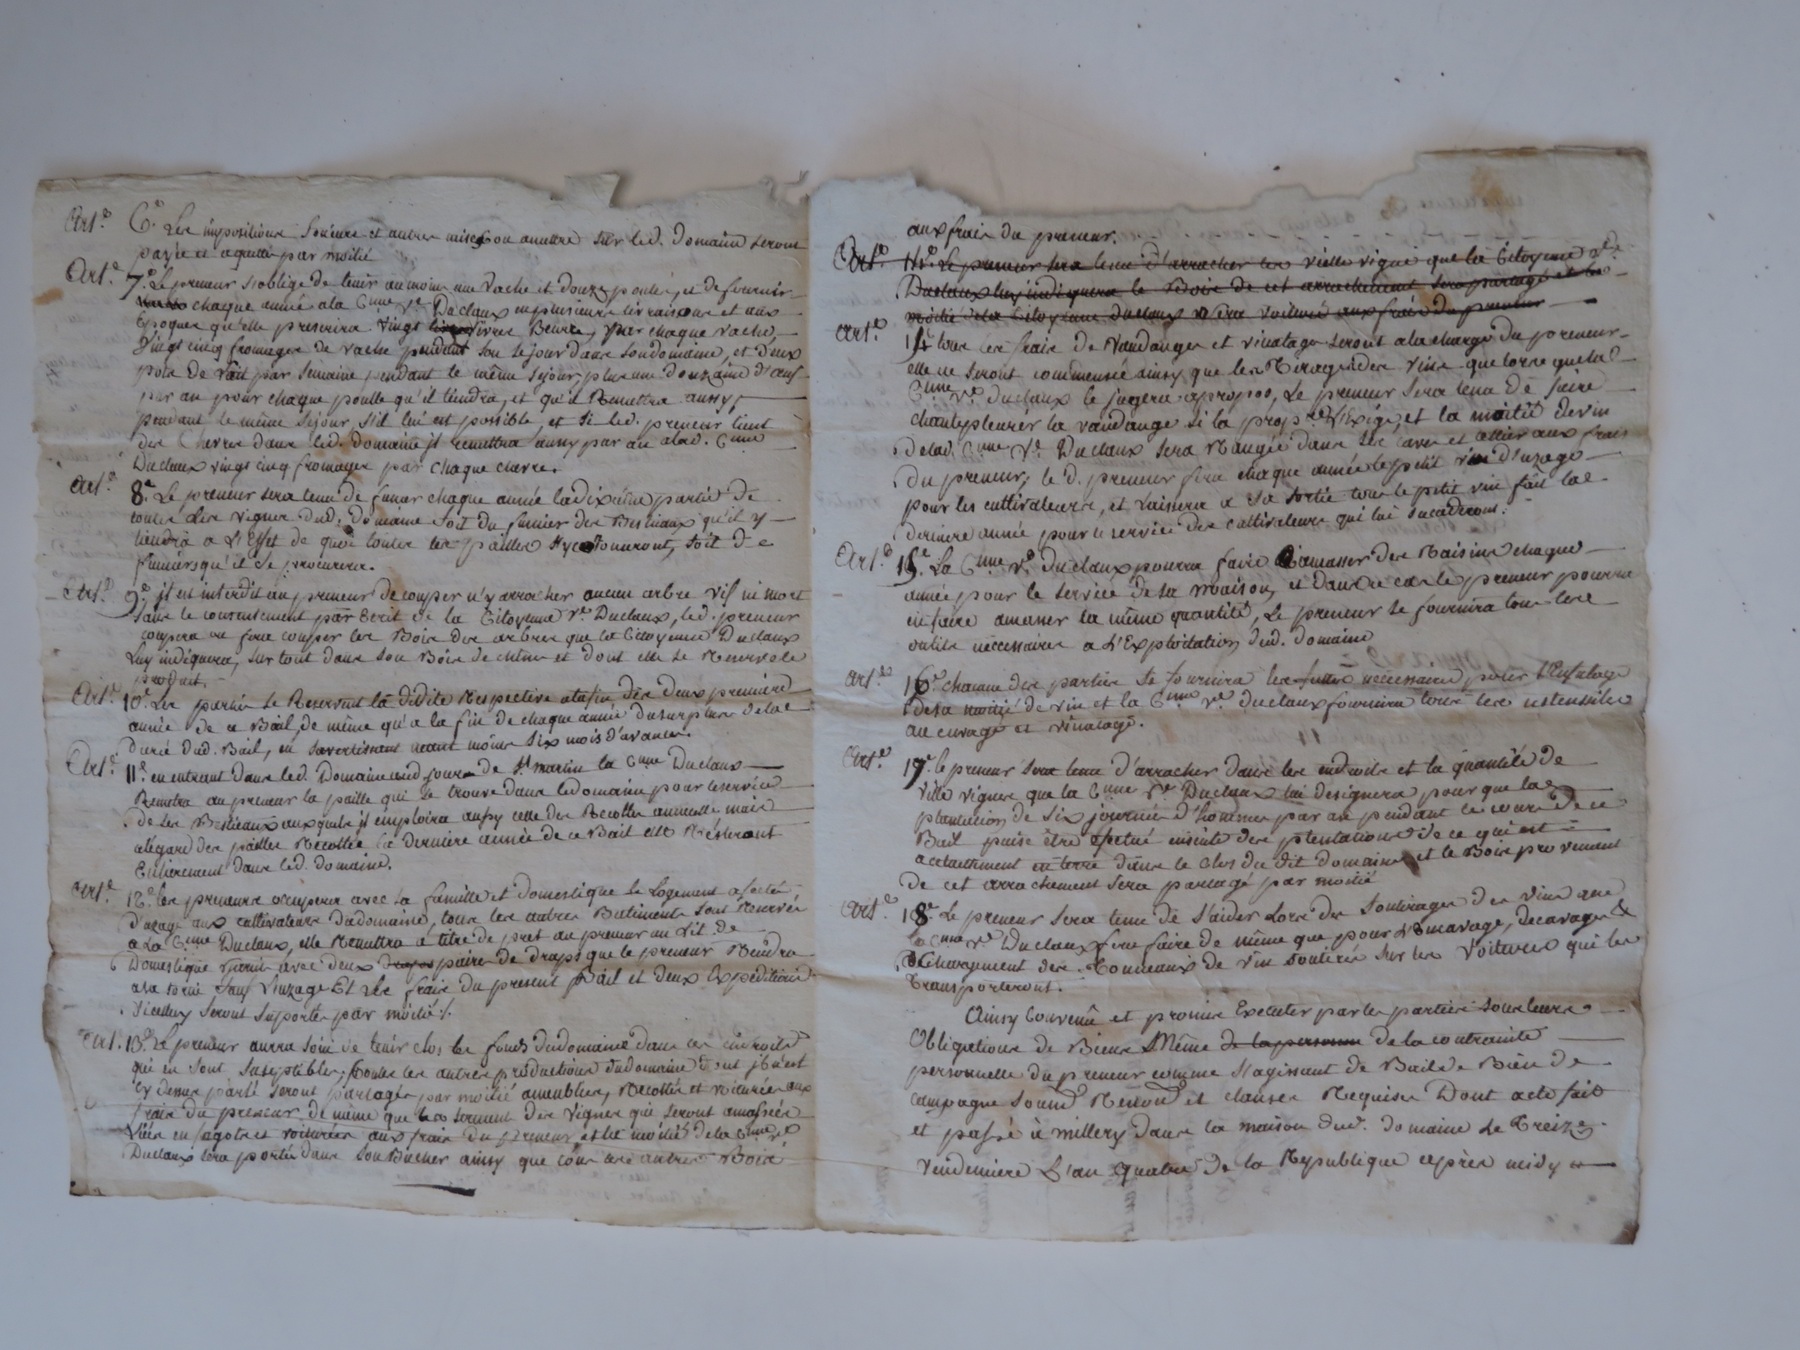 Art.e 6.e Les impositions fonciere et autres mises ou amettre sur led. domaine seront
payées et aquittés par moitié
Art.e 7.e Le preneur s'oblige de tenir aumoins une vache et douze poules, et de fournir
chaque année a la C.enne V.e Duclaux en plusieurs livraisons et aux
Epoques qu'elle prescrira vingt livres Beurre, par chaque vache
vingt cinq fromages de vache pendant son séjour dans son domaine, et deux
pots de lait par semaine pendant le même sejour, plus une douzaine d'œufs
par an pour chaque poulle qu'il tiendra, et qu'il Remettra aussy
pendant le même séjour, s'il lui est possible, et si led. preneur tient
des Chevres dans led. Domaine il remettra aussy par an alad. C.enne
Duclaux vingt cinq fromages par chaque chevre.
Art.e 8.e Le preneur sera tenu de fumer chaque année la dixième partie de
toutes les vignes dud. Domaine soit du fumier des Bestiaux qu'il y
tiendra a L'Effet de quoi toutes les pailles s'y consommeront, soit de
fumiers qu'il se procurera.
Art.e 9.e il est interdit au preneur de couper n'y arracher aucun arbre vif ni mort
sans le consentement par Ecrit de la Citoyenne V.e Duclaux, led. preneur
coupera ou fera couper les Bois des arbres que la Citoyenne Duclaux
Luy indiquera, sur tout dans son Bois de chêne et dont elle se Reserve le
produit.
Art.e 10.e Les parties se Reservent la dédite Respective a la fin des deux premières
année de ce Bail, de même qu'a la fin de chaque année du surplus de la
durée dud. Bail, en s'avertissant neant moins six mois d'avance.
Art.e 11.e en entrant dans led. Domaine aud. jour de S.t martin la C.enne Duclaux
Remettra au preneur la paille qui se trouve dans le domaine pour le service
de ses Bestiaux auxquels il emploira aussy celle des Recoltes annuelle mais
alégard des pailles Recoltées la derniere année de ce Bail elle Resteront
Entierement dans led. domaine.
Art.e 12.e les preneurs occupera avec sa famille et domestique le logement afecté
d'usage aux cultivateurs du domaine, tous les autres Batiments sont Reservés
a La C.enne Duclaux, elle Remettra a titre de pret au preneur un Lit de
Domestique garni avec deux draps paires de draps que le preneur Rendra
a la sortie sauf l'uzage Et Les frais du present Bail et deux Expéditions
d'icelluy seront suportés par moitié.
Art. 13.e Le preneur aura soin de tenir clos les fonds du domaine dans les endroits
qui en sont suseptibles, toutes les autres productions du domaine dont il n'est
cy dessus parlé seront partagés par moitié ameublies, Recoltés et voiturées aux
frais du preneur de même que les serment des vignes qui seront amassées
Liées en fagots et voiturées aux frais du preneur et la moitié de la C.enne V.e
Duclaux sera portée dans son Bucher ainsy que tous les autres Bois
aux frais du preneur.
Art.e 14.e Le preneur sera tenu d'arracher les vielle vigne que la Citoyenne V.e
Duclaux luy indiquera le Bois de cet arrachement sera partagé et la
moitié de la Citoyenne duclaux sera voituré aux frais du preneur
Art.e 14 tous les frais de Vandanges et vinatage seront a la charge du preneur
elle ne seront commencée ainsy que les Tirages des vins que lorsque la d.
C.enne V.e duclaux le jugera apropos, Le preneur sera tenu de faire
chantepleurér la vandange si la prop.re L'Exige, et la moitié de vin
de lad. C.enne V.e Duclaux sera Rangée dans ses caves et cellier aux frais
du preneur; le d. preneur fera chaque année le petit vin d'uzage
pour les cultivateurs, et Laissera a sa sortie tous le petit vin fait la
derniere année pour le service des cultivateurs qui lui succederont.
Art.e 15.e La C.enne V.e Duclaux pourra faire Ramasser des Raisins chaque
année pour le service de sa maison, et dans ce cas le preneur pourra
en faire amasser la même quantité, Le preneur se fournira tous les
outils neccessaires a L'Exploitation dud. domaine
Art.e 16.e chacune des parties se fournira les futs neccessaires pour l'Enfutage
de sa moitié de vin et la C.enne V.e duclaux fournira tous les ustensiles
au cuvage et vinatage.
Art.e 17.e le preneur sera tenu d'arracher dans les endroits et la quantité de
vielle vignes que la C.enne V.e Duclaux lui designera pour que la
plantation de six journée d'hommes par an pendant le cours de ce
Bail puise être efetué ensuite des plentations de ce qui est
actuellement en terre dans le Clos du dit domaine et le Bois provenant
de cet arrachement sera partagé par moitié
Art.e 18.e Le preneur sera tenu de s'aider Lors des Soutirages des vins que
la C.enne V.e Duclaux fera faire de même que pour L'Encavage, decavage &
Chargement des Tonneaux de vin soutirés sur les voitures qui les
transporteront.
Ainsy Convenû et promis Executer par les parties sous leurs
Obligations de Biens Même de la personne de la contrainte
personnelle du preneur comme s'agissant de Bail de Bien de
campagne soum.s Renon.s et clauses Requises Dont acte fait
et passé à millery dans la maison dud. domaine Le Treize
vendemiere L'an Quatre de la République après midy